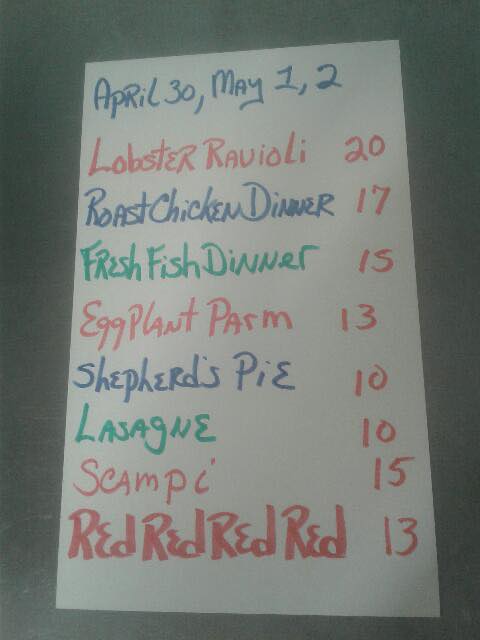 April 30, May 1, 2
Lobster Ravioli 20
Roast Chicken Dinner 17
Fresh Fish Dinner 15
Eggplant Parm 13
Shepherd's Pie 10
Lasagne 10
Scampi 15
Red Red Red Red 13